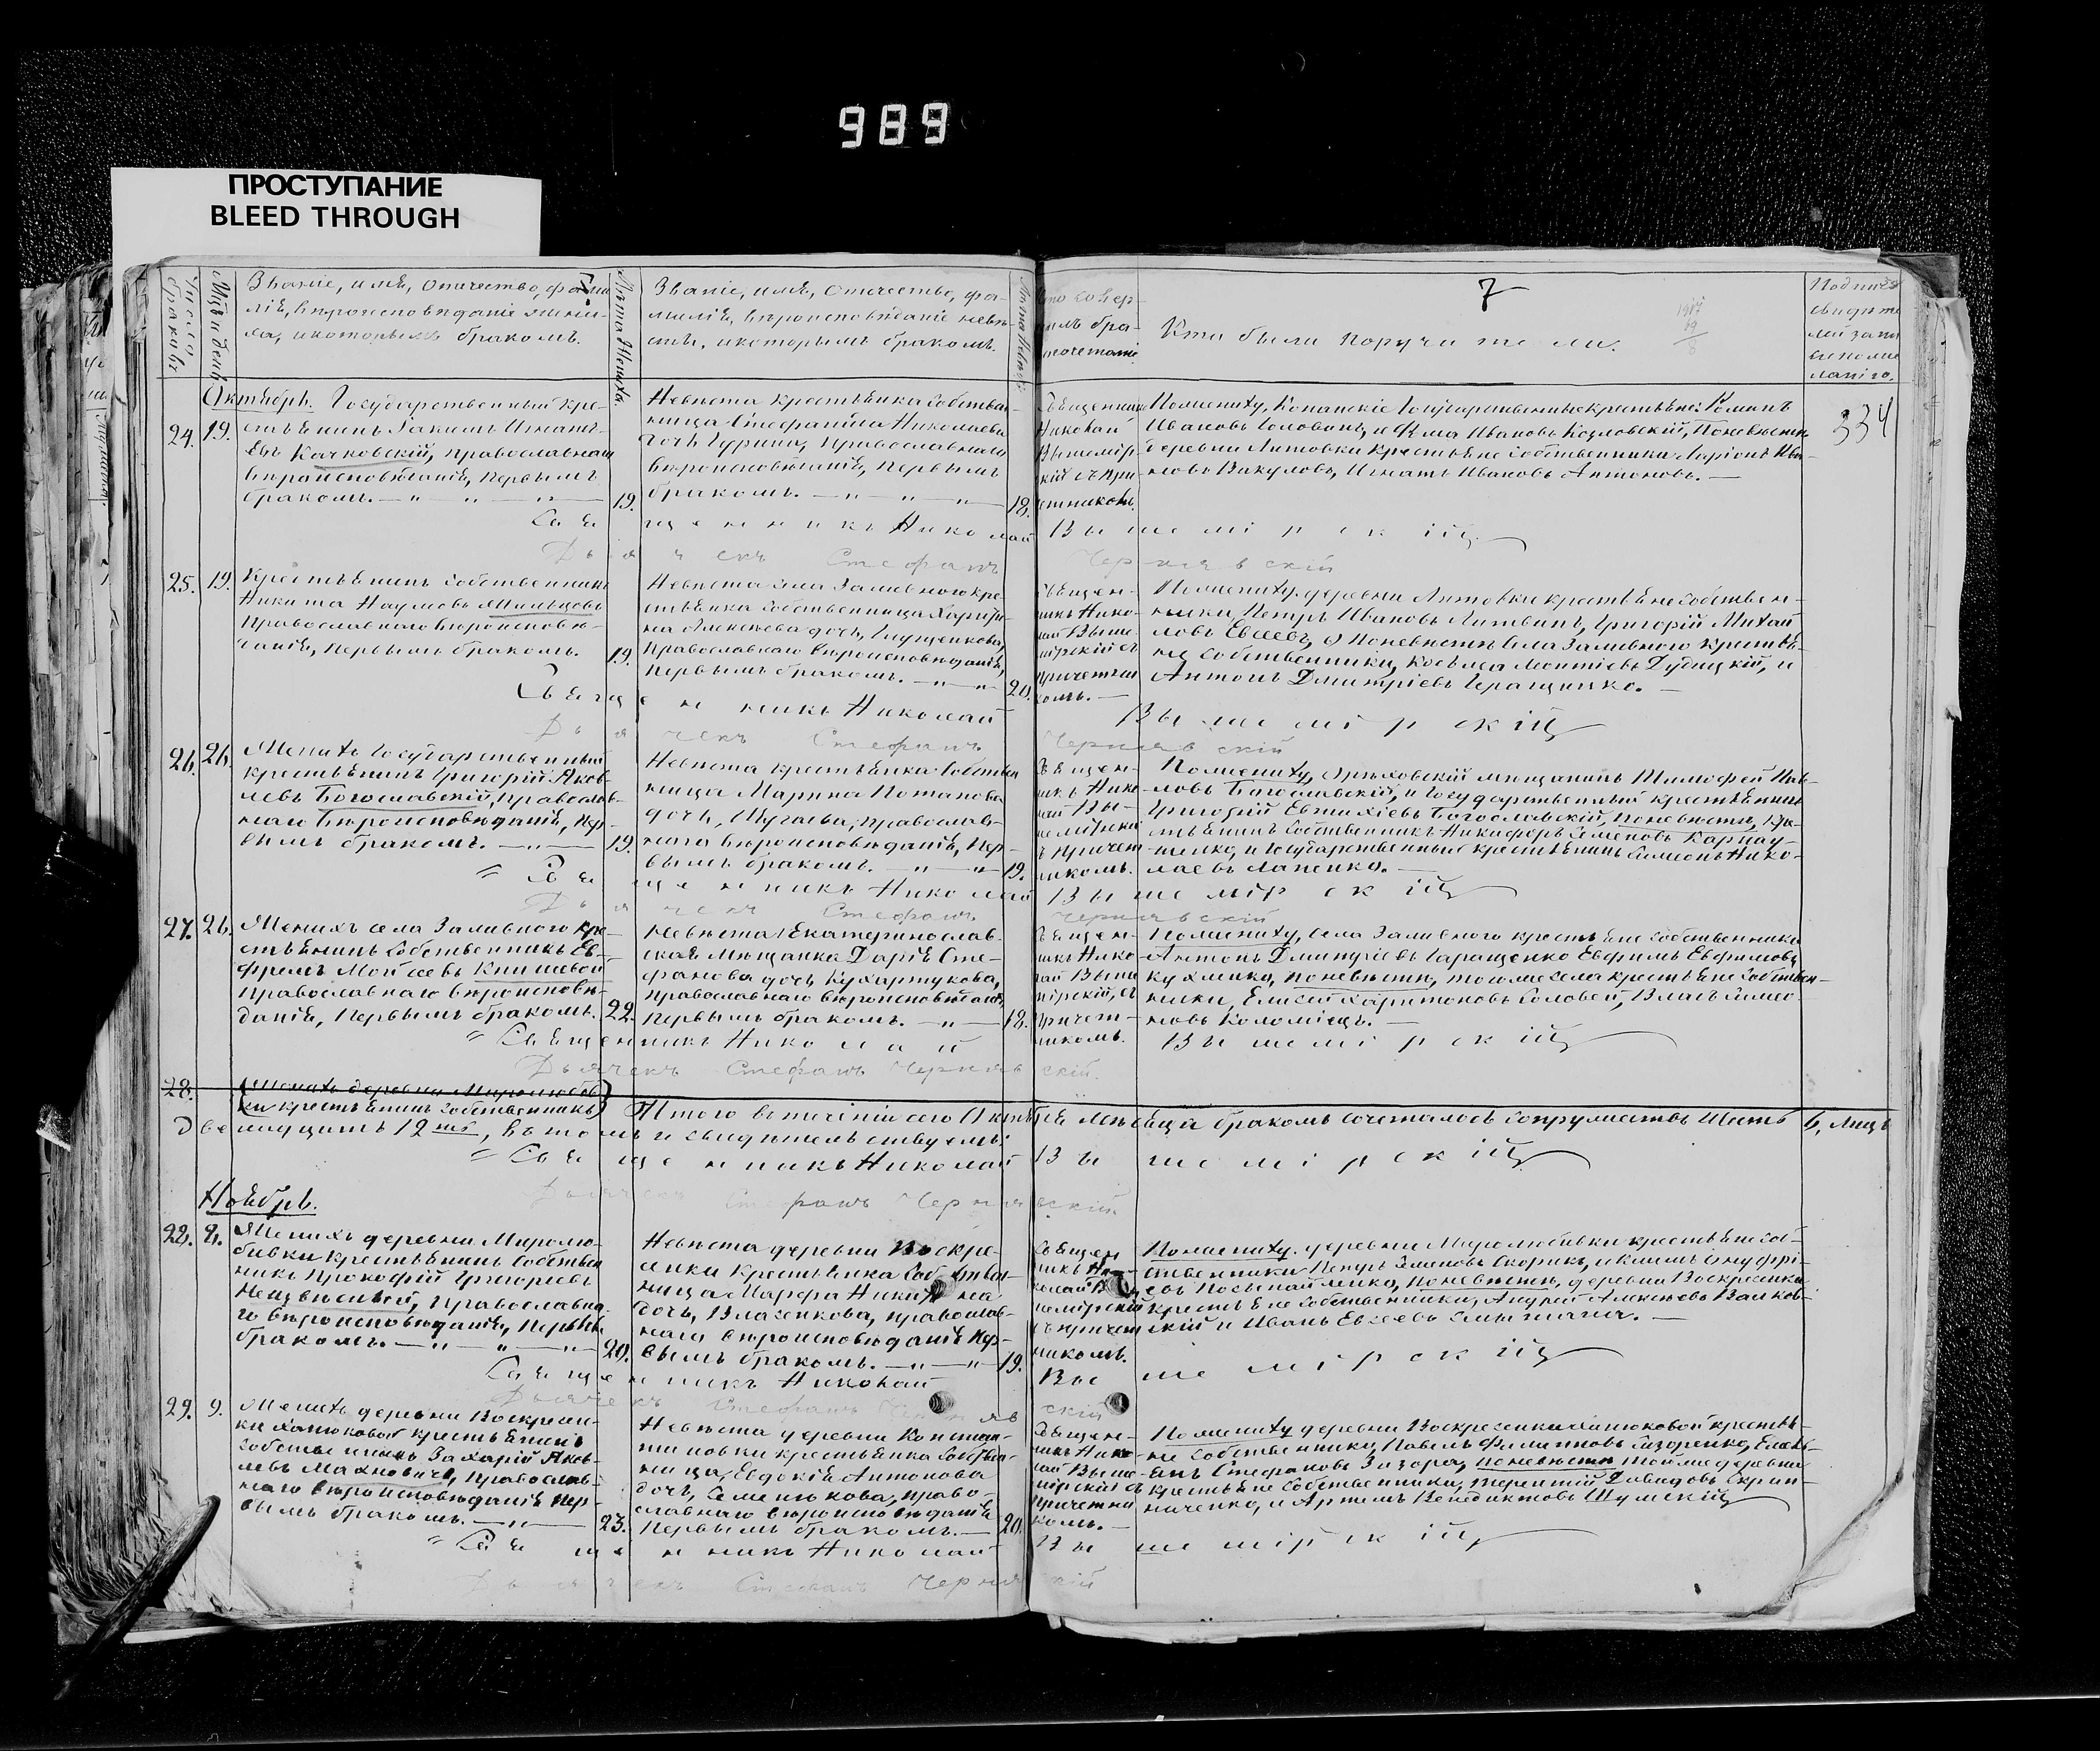 989
ПРОСТУПАНИЕ
BLEED THROUGH
Число браковъ
Мѣс. и день
Званіе, имя, Отчество, фами-
лія, вѣроисповѣданіе жени-
ха, и которымъ бракомъ.
Лѣта Жениха.
Званіе, имя, Отчество, фа-
милія, вѣроисповѣданіе невѣ-
сты, и которымъ бракомъ.
Кто были поручители.
7
334
Октябрь. Государственный кре-
24. 19. стьянинъ Іакимъ Игнать-
евъ Качковскій, православнаго
вѣроисповѣданія, первымъ
бракомъ. 19.
Невѣста крестьянка собствен-
ница Стефанида Николаева
дочь Гурина, православнаго
вѣроисповѣданія, первымъ
бракомъ. 18.
Священникъ
Николай
Вышемір-
скій съ при-
четникомъ.
По жениху, Копанскіе государственные крестьяне: Романъ
Ивановъ Головонъ, и Ѳома Ивановъ Козловскій, По невѣстѣ
деревни Литовки крестьяне собственники Ларіонъ Ива-
новъ Вакуловъ, Игнатъ Ивановъ Антоновъ.
Священникъ Николай Вышемірскій
Дьячекъ Стефанъ Чернявскій
25. 19. Крестьянинъ собственникъ
Никита Наумовъ Мильцовъ
Православнаго вѣроисповѣ-
данія, первымъ бракомъ. 19.
Невѣста села Заливного кре-
стьянка собственница Харити-
на Алексѣева дочь, Глущенкова,
православнаго вѣроисповѣданія,
первымъ бракомъ. 20.
Священ-
никъ Нико-
лай Выше-
мірскій съ
причетни
комъ.
По жениху деревни Литовки крестьяне собствен-
ники, Петръ Ивановъ Литвинъ, Григорій Михай
ловъ Евсеевъ, а По невѣстѣ села Заливного крестья-
не собственники, Косьма Моптіевъ Дудицкій, и
Антонъ Дмитріевъ Геращенко.
Священникъ Николай Вышемірскій
Дьячекъ Стефанъ Чернявскій
26. 26. Женихъ государственный
крестьянинъ Григорій Яков-
левъ Богославскій, православ-
наго вѣроисповѣданія, пер-
вымъ бракомъ. 19.
Невѣста крестьянка собствен
ница Марина Потапова
дочь, Шугаева, православ-
наго вѣроисповѣданія, пер-
вымъ бракомъ. 19.
Священ-
никъ Нико
лай Вы-
шемірскій
съ причет
никомъ.
По жениху, Орѣховскій мѣщанинъ Тимофей Пав-
ловъ Богославскій, и государственный крестьянинъ
Григорій Евтихіевъ Богославскій, по невѣстѣ, кре-
стьянинъ собственникъ Никифоръ Семеновъ Карнау-
шенко, и государственный крестьянинъ Симеонъ Нико-
лаевъ Лапенко.
Священникъ Николай Вышемірскій
Дьячекъ Стефанъ Чернявскій
27. 26. Женихъ села Заливного кре-
стьянинъ собственникъ Еф-
фремъ Моисеевъ Книшевой
Православнаго вѣроисповѣ-
данія, первымъ бракомъ. 22.
Невѣста Екатеринослав-
ская мѣщанка Дарія Сте-
фанова дочь Кухартукова,
православнаго вѣроисповѣданія,
первымъ бракомъ. 18.
Священ-
никъ Нико-
лай Выше
мірскій, съ
причет-
никомъ.
По жениху, села Заливного крестьяне собственники
Антонъ Дмитріевъ Геращенко Евфимъ Евфимовъ
Кухленко, по невѣстѣ, того же села крестьяне собствен-
ники, Елисей Харитоновъ Соловей, Власъ Симео
новъ Коломіецъ.
Священникъ Николай Вышемірскій
Дьячекъ Стефанъ Чернявскій.
28. Женихъ деревни Миролюбов
ки крестьянинъ собственникъ
Итого въ теченіи сего Октября Мѣсяца бракомъ сочеталось супружествъ Шесть 6, лицъ
двенадцать 12ть, въ томъ и свидѣтельствуемъ:
Священникъ Николай Вышемірскій
Дьячекъ Стефанъ Чернявскій.
Ноябрь.
28. 2. Женихъ деревни Миролю-
бивки крестьянинъ собствен
никъ Прокофій Григорьевъ
Неизвѣстный, Православна
го вѣроисповѣданія, первымъ
бракомъ. 20.
Невѣста деревни Воскре-
сенки крестьянка собствен-
ница Марфа Никитина
дочь, Власенкова, православ-
наго вѣроисповѣданія пер-
вымъ бракомъ. 19.
Священ
никъ Ни-
колай Вы
шемірскій
съ причет
никомъ.
По жениху деревни Миролюбивки крестьяне соб-
ственники Петръ Семеновъ Скорикъ, и Климъ Онуфрі-
евъ Посыпайленко, по невѣстѣ, деревни Воскресенки
крестьяне собственники, Андрей Алексѣевъ Валков-
скій и Иванъ Евсеевъ Смыгаль.
Священникъ Николай Вышемірскій
Дьячекъ Стефанъ Чернявскій
29. 9. Женихъ деревни Воскресен-
ки Ханюковой крестьянинъ
собственникъ Захарій Яков-
левъ Махновичъ, православ-
наго вѣроисповѣданія пер-
вымъ бракомъ. 23.
Невѣста деревни Констан-
тиновки крестьянка собствен-
ница, Евдокія Антонова
дочь, Семенькова, право-
славнаго вѣроисповѣданія
первымъ бракомъ. 20.
Священ-
никъ Нико-
лай Выше
мірскій съ
причетни
комъ.
По жениху деревни Воскресенки Ханюковой крестья-
не собственники, Павелъ Филиповъ Сизоренко, Емель-
янъ Стефановъ Зазора, по невѣстѣ той же деревни
крестьяне собственники, Терентій Давидовъ Скрип-
ниченко, и Артемъ Венедиктовъ Шумскій
Священникъ Николай Вышемірскій
Дьячекъ Стефанъ Чернявскій